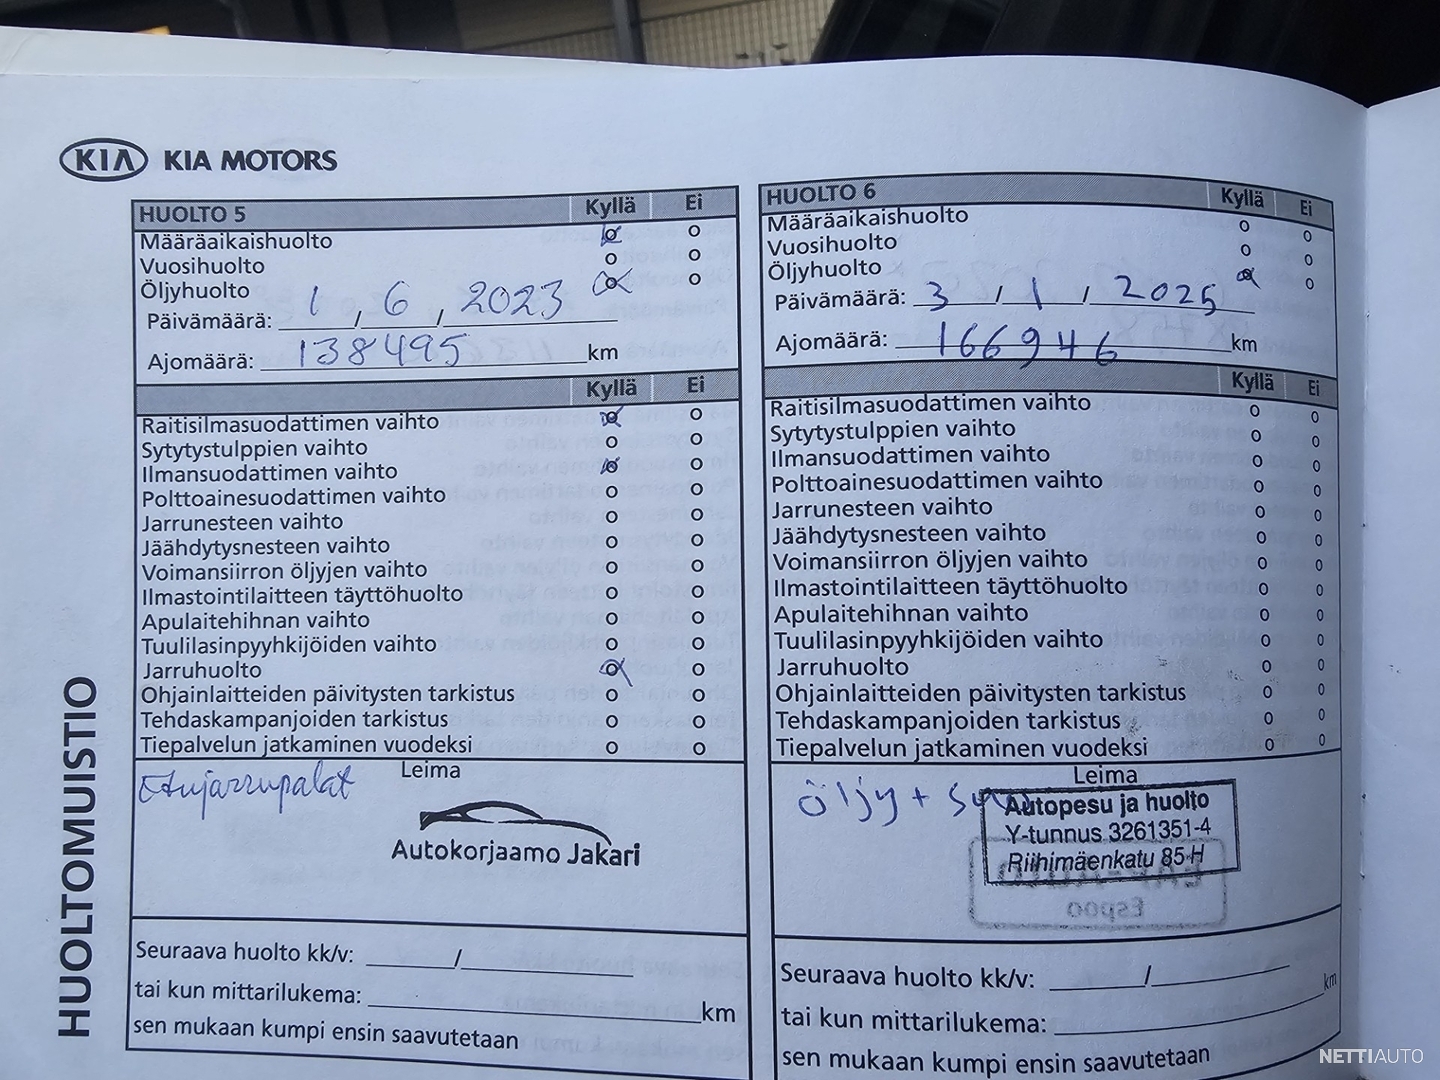 KIA KIA MOTORS
HUOLTO 5 Kyllä Ei
Määräaikaishuolto
Vuosihuolto
Öljyhuolto
Päivämäärä: 1 / 6 / 2023
Ajomäärä: 138495 km
Kyllä Ei
Raitisilmasuodattimen vaihto
Sytytystulppien vaihto
Ilmansuodattimen vaihto
Polttoainesuodattimen vaihto
Jarrunesteen vaihto
Jäähdytysnesteen vaihto
Voimansiirron öljyjen vaihto
Ilmastointilaitteen täyttöhuolto
Apulaitehihnan vaihto
Tuulilasinpyyhkijöiden vaihto
Jarruhuolto
Ohjainlaitteiden päivitysten tarkistus
Tehdaskampanjoiden tarkistus
Tiepalvelun jatkaminen vuodeksi
Leima
Etujarrupalat
Autokorjaamo Jakari
Seuraava huolto kk/v: /
tai kun mittarilukema: km
sen mukaan kumpi ensin saavutetaan
HUOLTO 6 Kyllä Ei
Määräaikaishuolto
Vuosihuolto
Öljyhuolto
Päivämäärä: 3 / 1 / 2025
Ajomäärä: 166946 km
Kyllä Ei
Raitisilmasuodattimen vaihto
Sytytystulppien vaihto
Ilmansuodattimen vaihto
Polttoainesuodattimen vaihto
Jarrunesteen vaihto
Jäähdytysnesteen vaihto
Voimansiirron öljyjen vaihto
Ilmastointilaitteen täyttöhuolto
Apulaitehihnan vaihto
Tuulilasinpyyhkijöiden vaihto
Jarruhuolto
Ohjainlaitteiden päivitysten tarkistus
Tehdaskampanjoiden tarkistus
Tiepalvelun jatkaminen vuodeksi
Leima
Öljy +
Autopesu ja huolto
Y-tunnus 3261351-4
Riihimäenkatu 85-H
Espoo
Seuraava huolto kk/v: /
tai kun mittarilukema: km
sen mukaan kumpi ensin saavutetaan
HUOLTOMUISTIO
NETTIAUTO